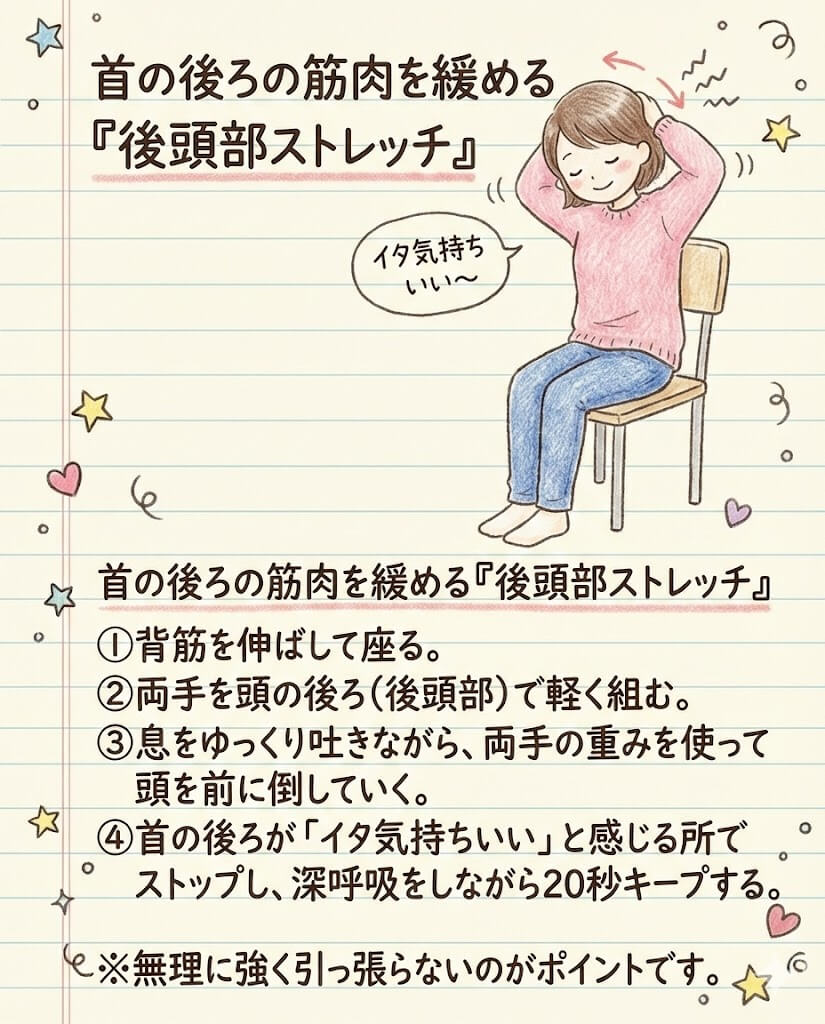 首の後ろの筋肉を緩める
『後頭部ストレッチ』
イタ気持ち
いい〜
首の後ろの筋肉を緩める『後頭部ストレッチ』
①背筋を伸ばして座る。
②両手を頭の後ろ（後頭部）で軽く組む。
③息をゆっくり吐きながら、両手の重みを使って
頭を前に倒していく。
④首の後ろが「イタ気持ちいい」と感じる所で
ストップし、深呼吸をしながら20秒キープする。
※無理に強く引っ張らないのがポイントです。